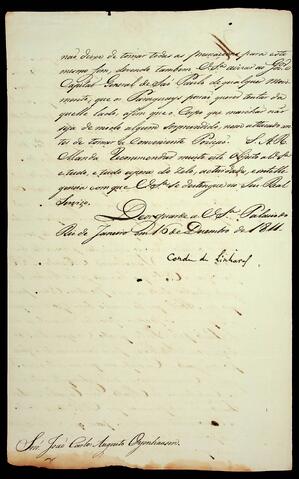 não deixe de tomar todas as precauções para este
mesmo fim, devendo também V.S.ª avizar ao Gov.or
Capitão General de São Paulo de qualquer movi-
mento, que o Paraguay possa querer tentar da
quelle lado, afim que o Corpo que marchar não
seja de modo algum sorprendido, nem atacado an-
tes de tomar a conveniente Pozição. S. A. R.
Manda Recommendar muito este objecto a V.S.ª
e tudo, e tudo espera do zelo, actividade, e intelli-
gencia com que V.S.ª se destingue no Seu Real
Serviço.
Deos guarde a V.S.ª Palacio do
Rio de Janeiro em 16 de Dezembro de 1811.
Conde de Linhares
Snr. João Carlos Augusto Oeynhausen.